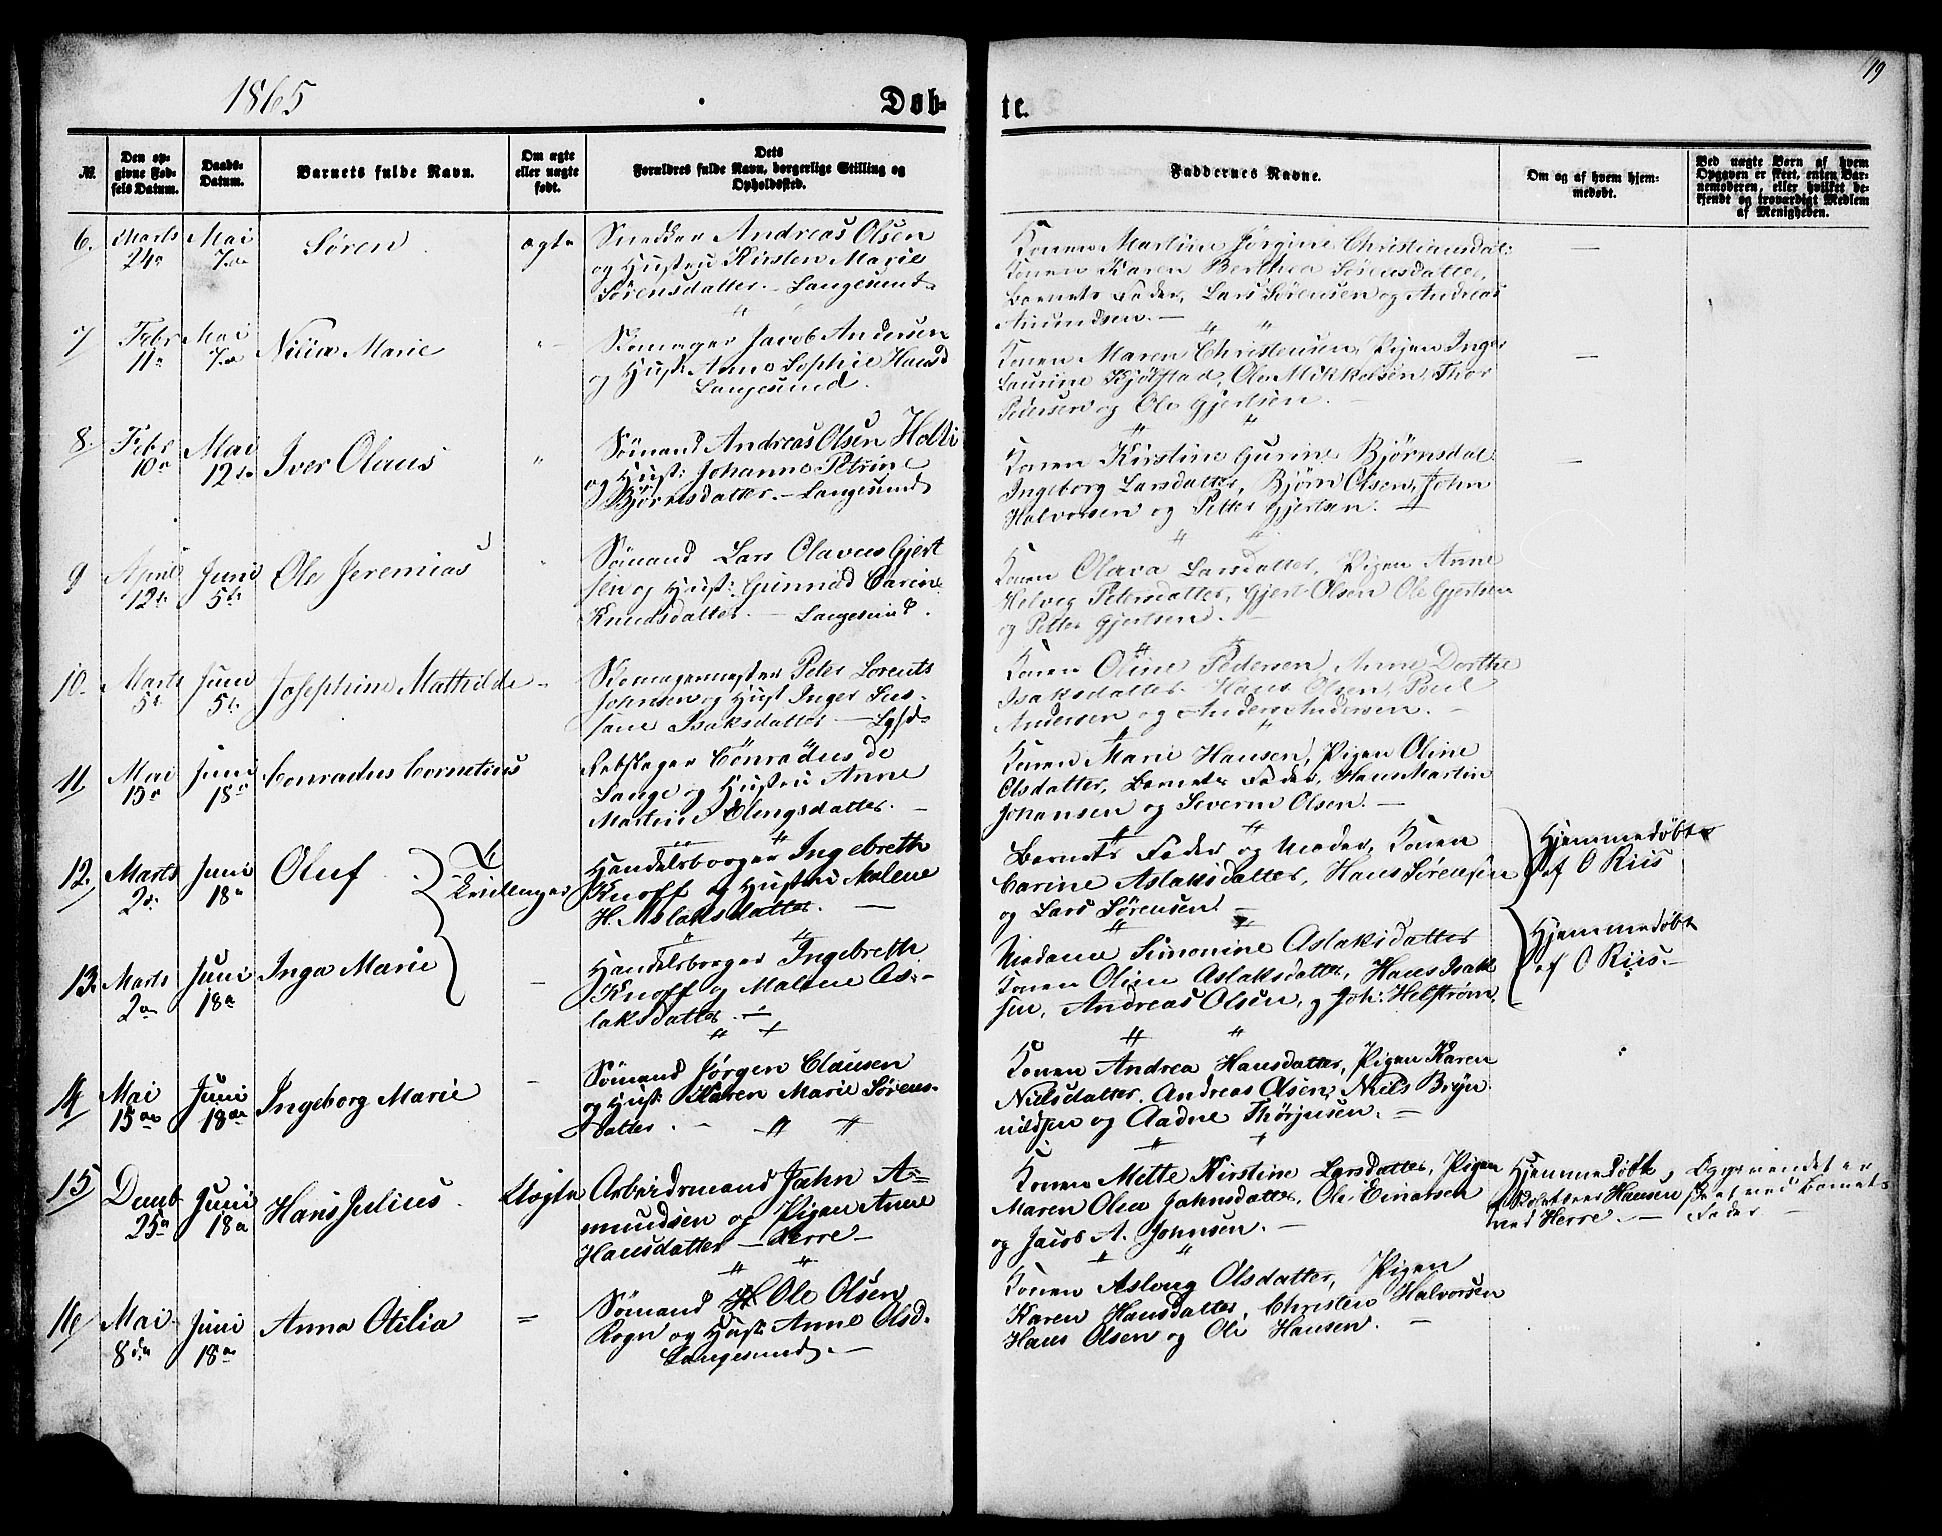 1865
Døb-
te.
19
№.
Den op-
givne Fød-
sels Datum.
Daabs-
Datum.
Barnets fulde Navn.
Om ægte
eller uægte
født.
Dets
Forældres fulde Navn, borgerlige Stilling og
Opholdssted.
Faddernes Navne.
Om og af hvem hjem-
medøbt.
Ved uægte Børn af hvem
Opgaven er skeet, enten Bar-
nemoderen, eller hvilket be-
kjendt og troværdigt Medlem
af Menigheden.
6. Marts 24 Mai 7de Søren ægte
Snedker Andreas Olsen
og Hustru Kirsten Marie
Sørensdatter. – Langesund
Konen Martine Jørgine Christiansdat:
Konen Karen Berthea Sørensdatter,
Barnets Fader, Lars Sørensen og Andreas
Amundsen. –
7 Febr 11 Mai 7de Marie
Skomager Jacob Andersen
og Hust: Anne Sophie Hansd
Langesund.
Konen Maren Christensen, Pigen Inger
Laurine Kjølstad, Ole Mikkelsen, Thor
Pedersen og Ole Gjertsen. –
8. Febr 10 Mai 12te Iver Olaus "
Sømand Andreas Olsen Holte
og Hust: Johanne Petrine
Bjørnsdatter. – Langesund
Konen Kirstine Gurine Bjørnsdat.
Ingeborg Larsdatter, Bjørn Olsen, John
Halvorsen og Petter Gjertsen.
9 April 12te Juni 5te Ole Jeremias "
Sømand Lars Olavus Gjert
sen og Hust: Gunnild Carine
Knudsdatter. – Langesund.
Konen Olava Larsdatter, Pigen Anne
Helvig Petersdatter, Gjert Olsen Ole Gjertsen
og Petter Gjertsen. –
10. Marts 5te Juni 5te Josephine Mathilde –
Skomagermester Peter Lorents
Johnsen og Hust Inger Sus-
sane Isaksdatter –
Konen Oline Pedersen, Anne Dorthe
Isaksdatter. Hans Olsen, Poul
Andersen og Anders Andersen. –
11 Mai 15 Juni 18 Conradus Cornelius
Rebslager Conradus de
Lange og Hustru Anne
Martine Elingsdatter. –
Konen Marie Hansen, Pigen Oline
Olsdatter, Barnets Fader, Hans Martin
Johansen og Severin Olsen. –
12. Marts 2de Juni 18 Oluf Tvillinger
Handelsborger Ingebreth
Knoff og Hustru Malene
H. Aslaksdatter. –
Barnets Fader og Moder, Konen
Carine Aslaksdatter, Hans Sørensen
og Lars Sørensen. –
Hjemmedøbt
af O Riis
13. Marts 2 Juni 18 Inga Marie –
Handelsborger Ingebreth
Knoff og Malene As-
laksdatter. –
Madame Simonine Aslaksdatter
Konen Oline Aslaksdatter, Hans Isak
sen, Andreas Olsen, og Joh: Helstrøm.
Hjemmedøbt
af O Riis. –
14 Mai 15 Juni 18 Ingeborg Marie –
Sømand Jørgen Clausen
og Hust Karen Marie Sørens-
datter. –
Konen Andrea Hansdatter, Pigen Karen
Nielsdatter. Andreas Olsen, Niels Bryn
nildsen og Aadne Thorjusen. –
15 Decmb 25 Juni 18 Hans Julius. Uægte
Arbeidsmand John A-
mundsen og Pigen Anne
Hansdatter – Herre –
Konen Mette Kirstine Larsdatter, Pigen
Maren Olea Johnsdatter, Ole Einarsen
og Jacob A. Johnsen. –
Hjemmedøbt
Hansen
ved Herre. –
Opgivendet er
skeet ved Barnets
Fader –
16 Mai 8de Juni 18 Anna Otilia =
Sømand Ole Olsen
Rogn og Hust Anne Olsd.
Langesund. –
Konen Aslaug Olsdatter, Pigen
Karen Hansdatter, Christen Halvorsen
Hans Olsen og Ole Hansen. –